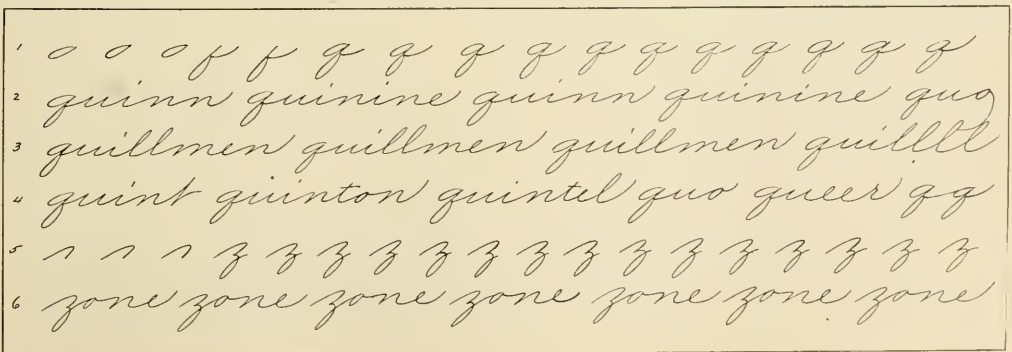 1 o o o q q q q q q q q q q q
2 quinn quinine quinn quinine quo
3 quillmen quillmen quillmen quillll
4 quint quinton quintel quo queer qq
5 z z z z z z z z z z z z z z z
6 zone zone zone zone zone zone zone